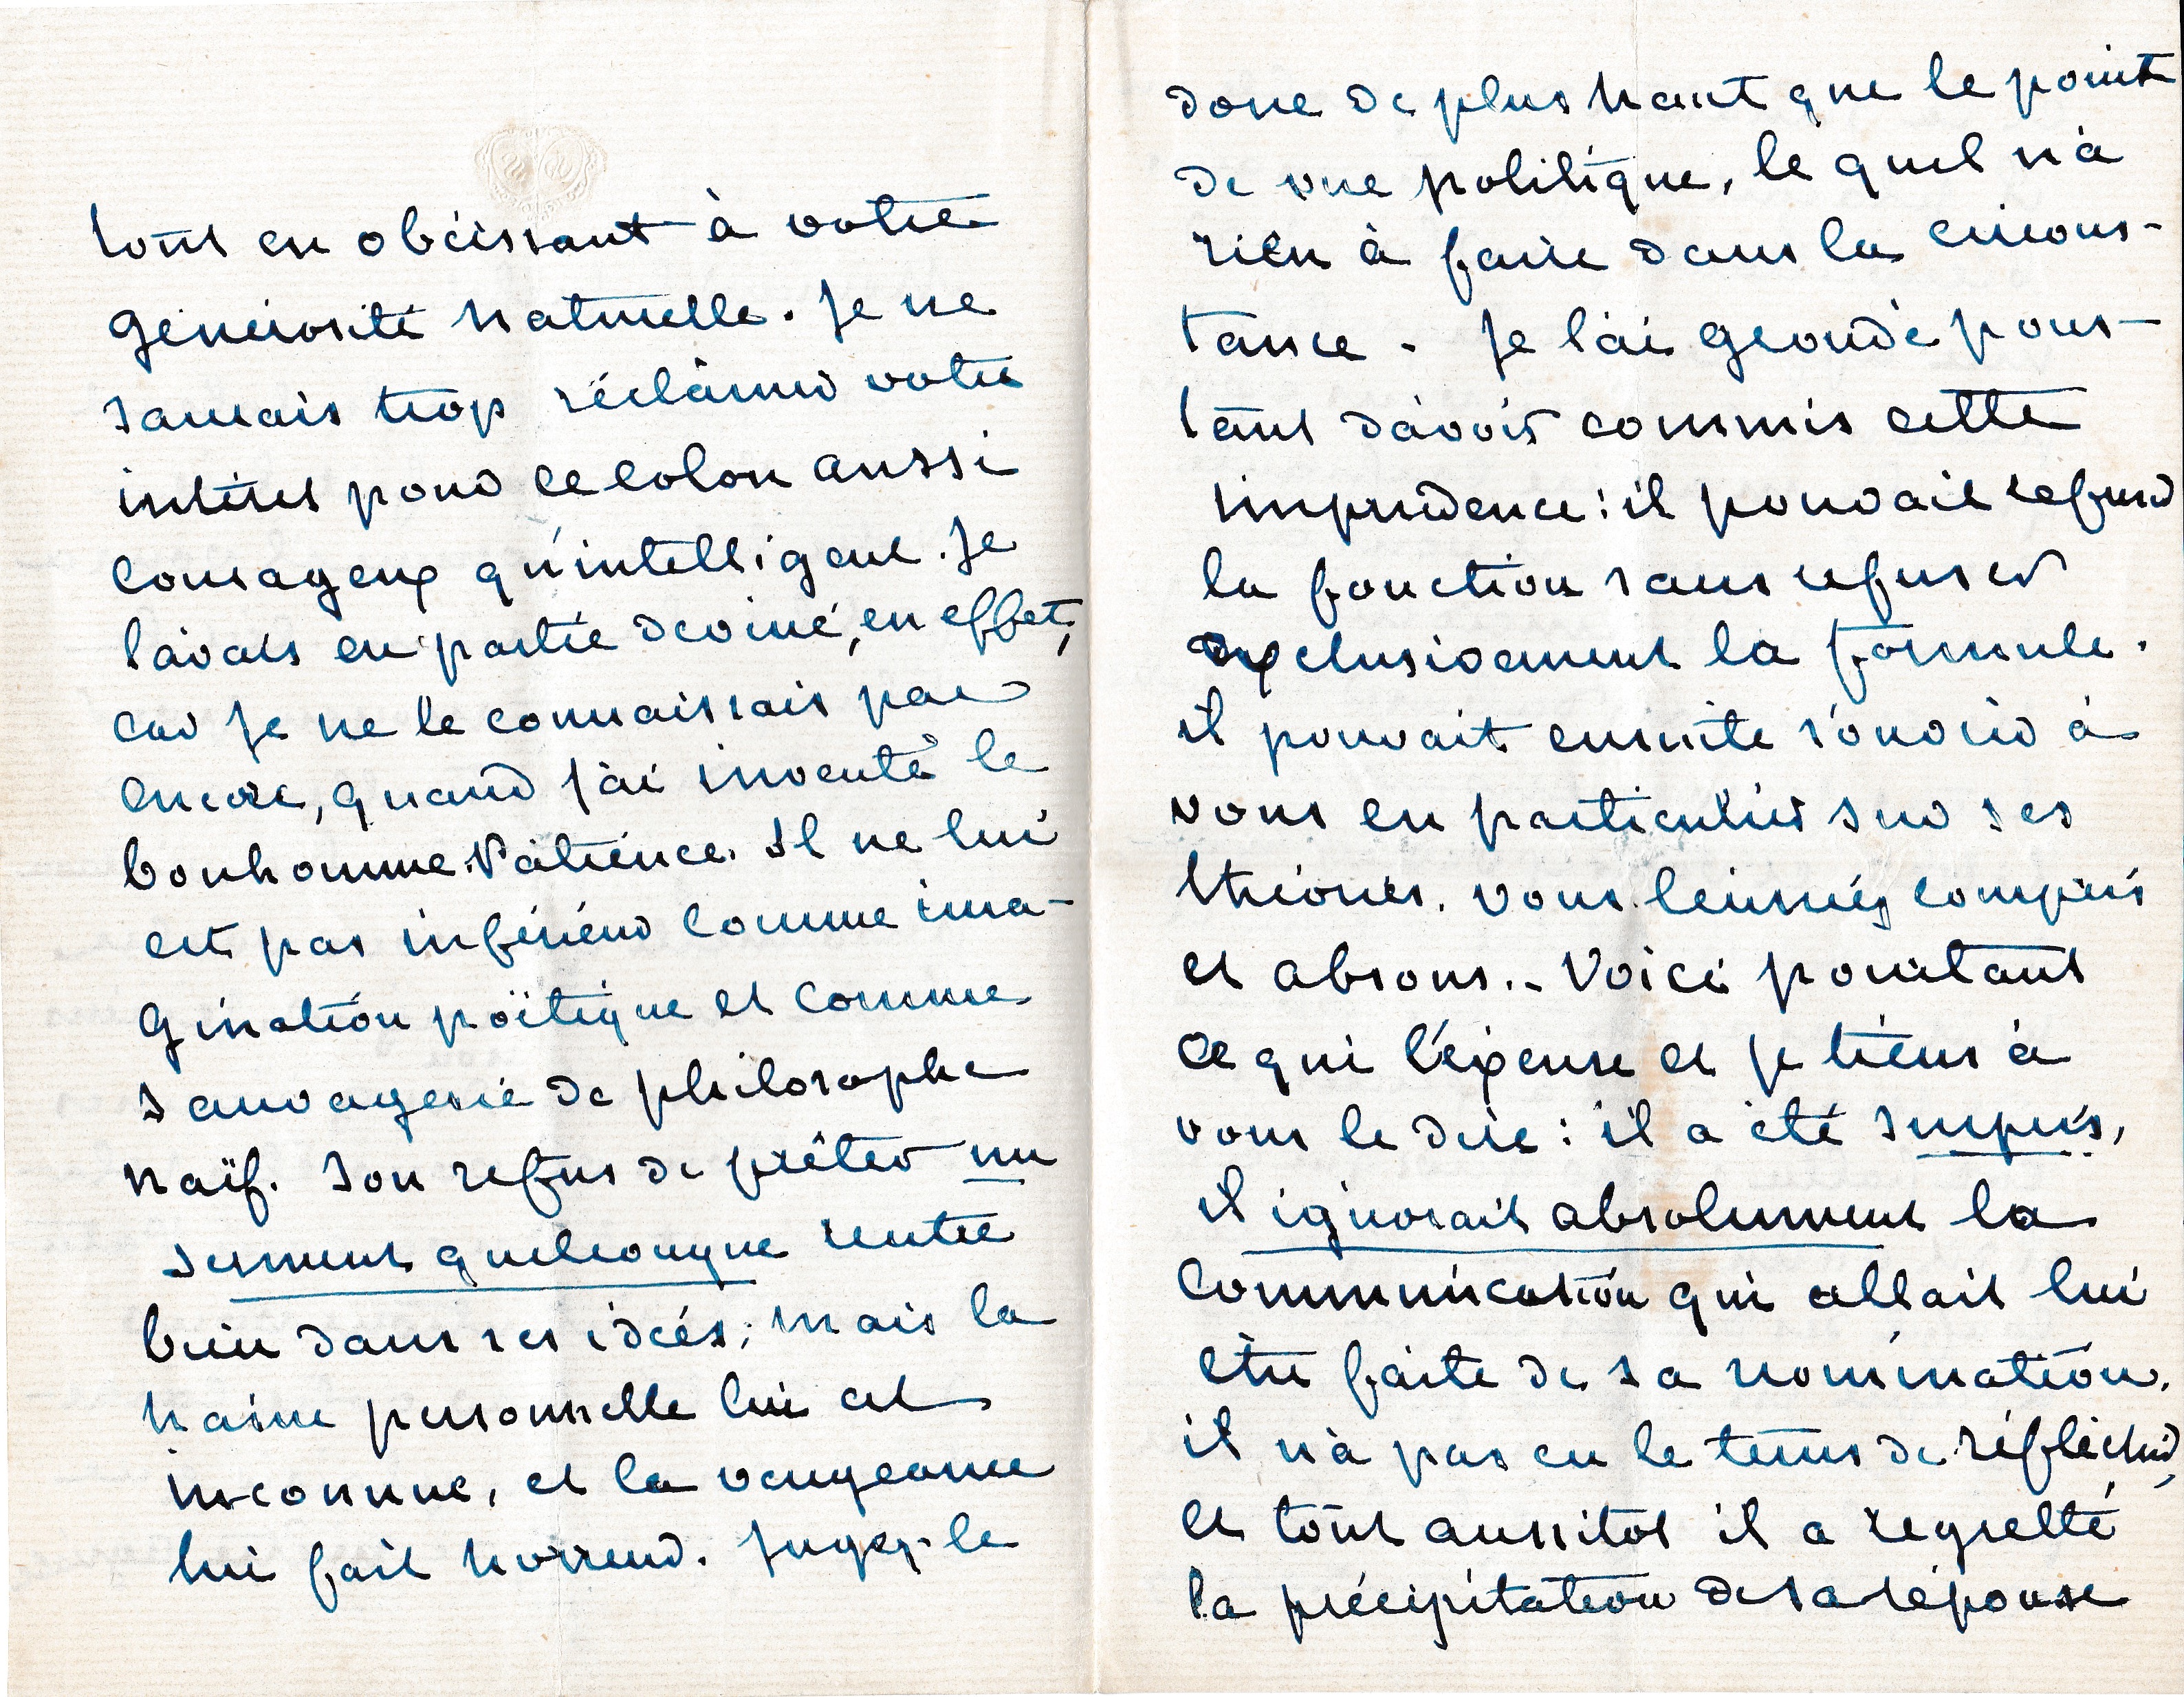 tout en obéissant à votre
générosité naturelle. Je ne
samais trop réclamer votre
intérêt pour ce colon aussi
courageux qu'intelligent. Je
l'avais en partie deviné, en effet,
car je ne le connaissais pas
encore, quand j'ai inventé le
bonhomme Patience. Il ne lui
est pas inférieur comme ima-
gination poëtique et comme
sauvagerie de philosophe
naïf. Son refus de prêter un
serment quelconque rentre
bien dans ses idées; mais la
haine personnelle lui est
inconnue, et la vengeance
lui fait horreur. Jugez-le
donc de plus haut que le point
de vue politique, le quel n'a
rien à faire dans la circons-
tance. Je l'ai grondé pour-
tant d'avoir commis cette
imprudence: il pouvait refuser
la fonction sans refuser
exclusivement la formule.
il pouvait ensuite s'ouvrir à
vous en particulier sur ses
théories. vous l'eussiez compris
et absous.. Voici pourtant
ce qui l'excuse et je tiens à
vous le dire: il a été surpris,
il ignorait absolument la
communication qui allait lui
être faite de sa nomination.
il n'a pas eu le tems de réfléchir,
et tout aussitot il a regretté
la précipitation de sa réponse